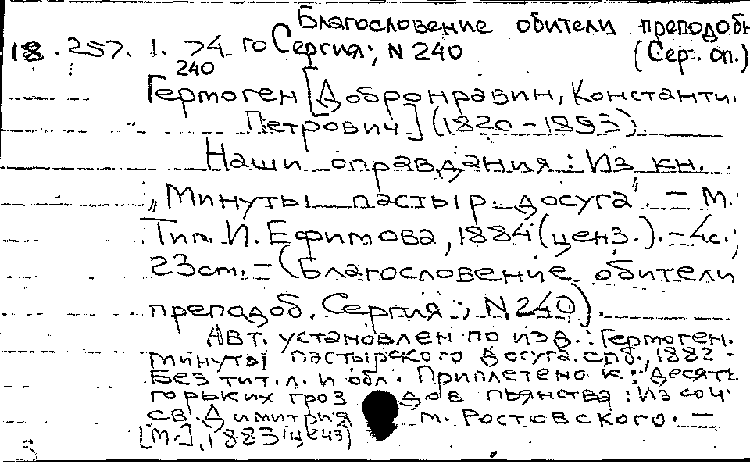 Благословение обители преподобн
18.257.1.74 го Сергия; N 240 (Сер. оп.)
240
Гермоген [Добронравин, Константи.
Петрович] (1820-1893)
Наши оправдания: Из кн.
„Минуты пастыр. досуга". - М.
Тип. И. Ефимова, 1884 (ценз.). - 4с.;
23cm. - (Благословение обители
преподоб. Сергия; N 240).
Авт. установлен по изд.: Гермоген.
Минуты пастырского досуга. Спб., 1882 -
Без тит. л. и обл. Приплетено к: Десять
горьких гроздов пьянства: Из соч.
св. Димитрия м. Ростовского. -
[М.], 1883 (ценз)